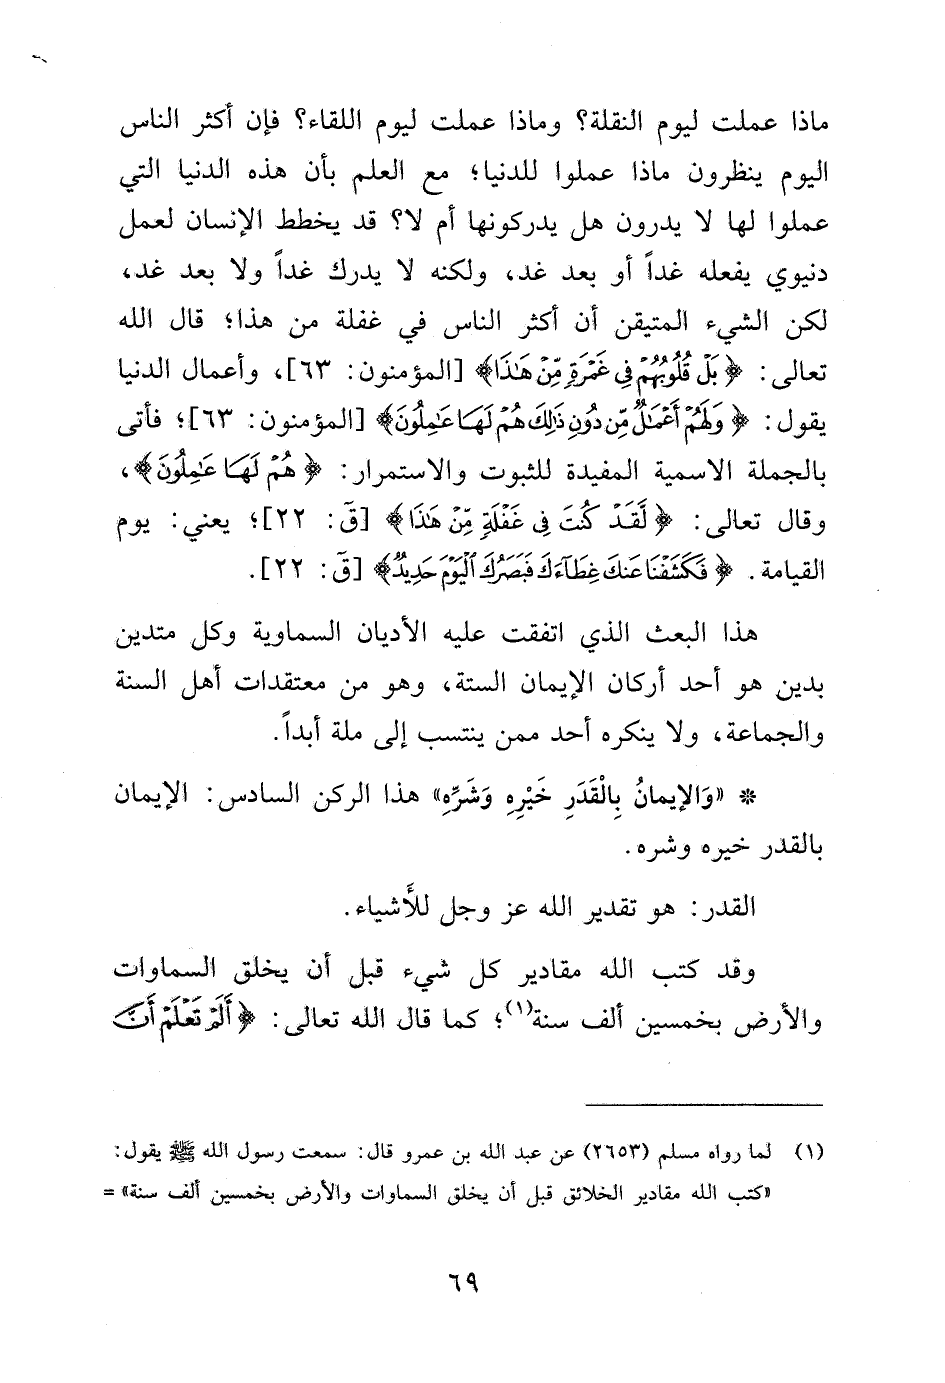 ماذا عملت ليوم النقلة؟ وماذا عملت ليوم اللقاء؟ فإن أكثر الناس
اليوم ينظرون ماذا عملوا للدنيا؛ مع العلم بأن هذه الدنيا التي
عملوا لها لا يدرون هل يدركونها أم لا؟ قد يخطط الإنسان لعمل
دنيوي يفعله غداً أو بعد غد، ولكنه لا يدرك غداً ولا بعد غد،
لكن الشيء المتيقن أن أكثر الناس في غفلة من هذا؛ قال الله
تعالى: ﴿بَلْ قُلُوبُهُمْ فِي غَمْرَةٍ مِّنْ هَٰذَا﴾ [المؤمنون: ٦٣]، وأعمال الدنيا
يقول: ﴿وَلَهُمْ أَعْمَٰلٌ مِّن دُونِ ذَٰلِكَ هُمْ لَهَا عَٰمِلُونَ﴾ [المؤمنون: ٦٣]؛ فأتى
بالجملة الاسمية المفيدة للثبوت والاستمرار: ﴿هُمْ لَهَا عَٰمِلُونَ﴾،
وقال تعالى: ﴿لَّقَدْ كُنتَ فِي غَفْلَةٍ مِّنْ هَٰذَا﴾ [قَ: ٢٢]؛ يعني: يوم
القيامة. ﴿فَكَشَفْنَا عَنكَ غِطَآءَكَ فَبَصَرُكَ ٱلْيَوْمَ حَدِيدٌ﴾ [قَ: ٢٢].
هذا البعث الذي اتفقت عليه الأديان السماوية وكل متدين
بدين هو أحد أركان الإيمان الستة، وهو من معتقدات أهل السنة
والجماعة، ولا ينكره أحد ممن ينتسب إلى ملة أبداً.
* «وَالإيمانُ بِالْقَدَرِ خَيْرِهِ وَشَرِّهِ» هذا الركن السادس: الإيمان
بالقدر خيره وشره.
القدر: هو تقدير الله عز وجل للأَشياء.
وقد كتب الله مقادير كل شيء قبل أن يخلق السماوات
والأرض بخمسين ألف سنة(١)؛ كما قال الله تعالى: ﴿أَلَمْ تَعْلَمْ أَنَّ
(١) لما رواه مسلم (٢٦٥٣) عن عبد الله بن عمرو قال: سمعت رسول الله ﷺ يقول:
«كتب الله مقادير الخلائق قبل أن يخلق السماوات والأرض بخمسين ألف سنة» =
٦٩